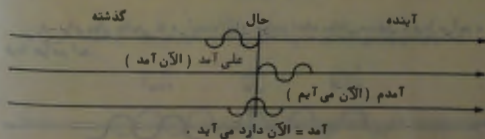 آینده حال گذشته
علی آمد ( الآن آمد )
آمدم ( الآن می آیم )
آمد = الآن دارد می آید .